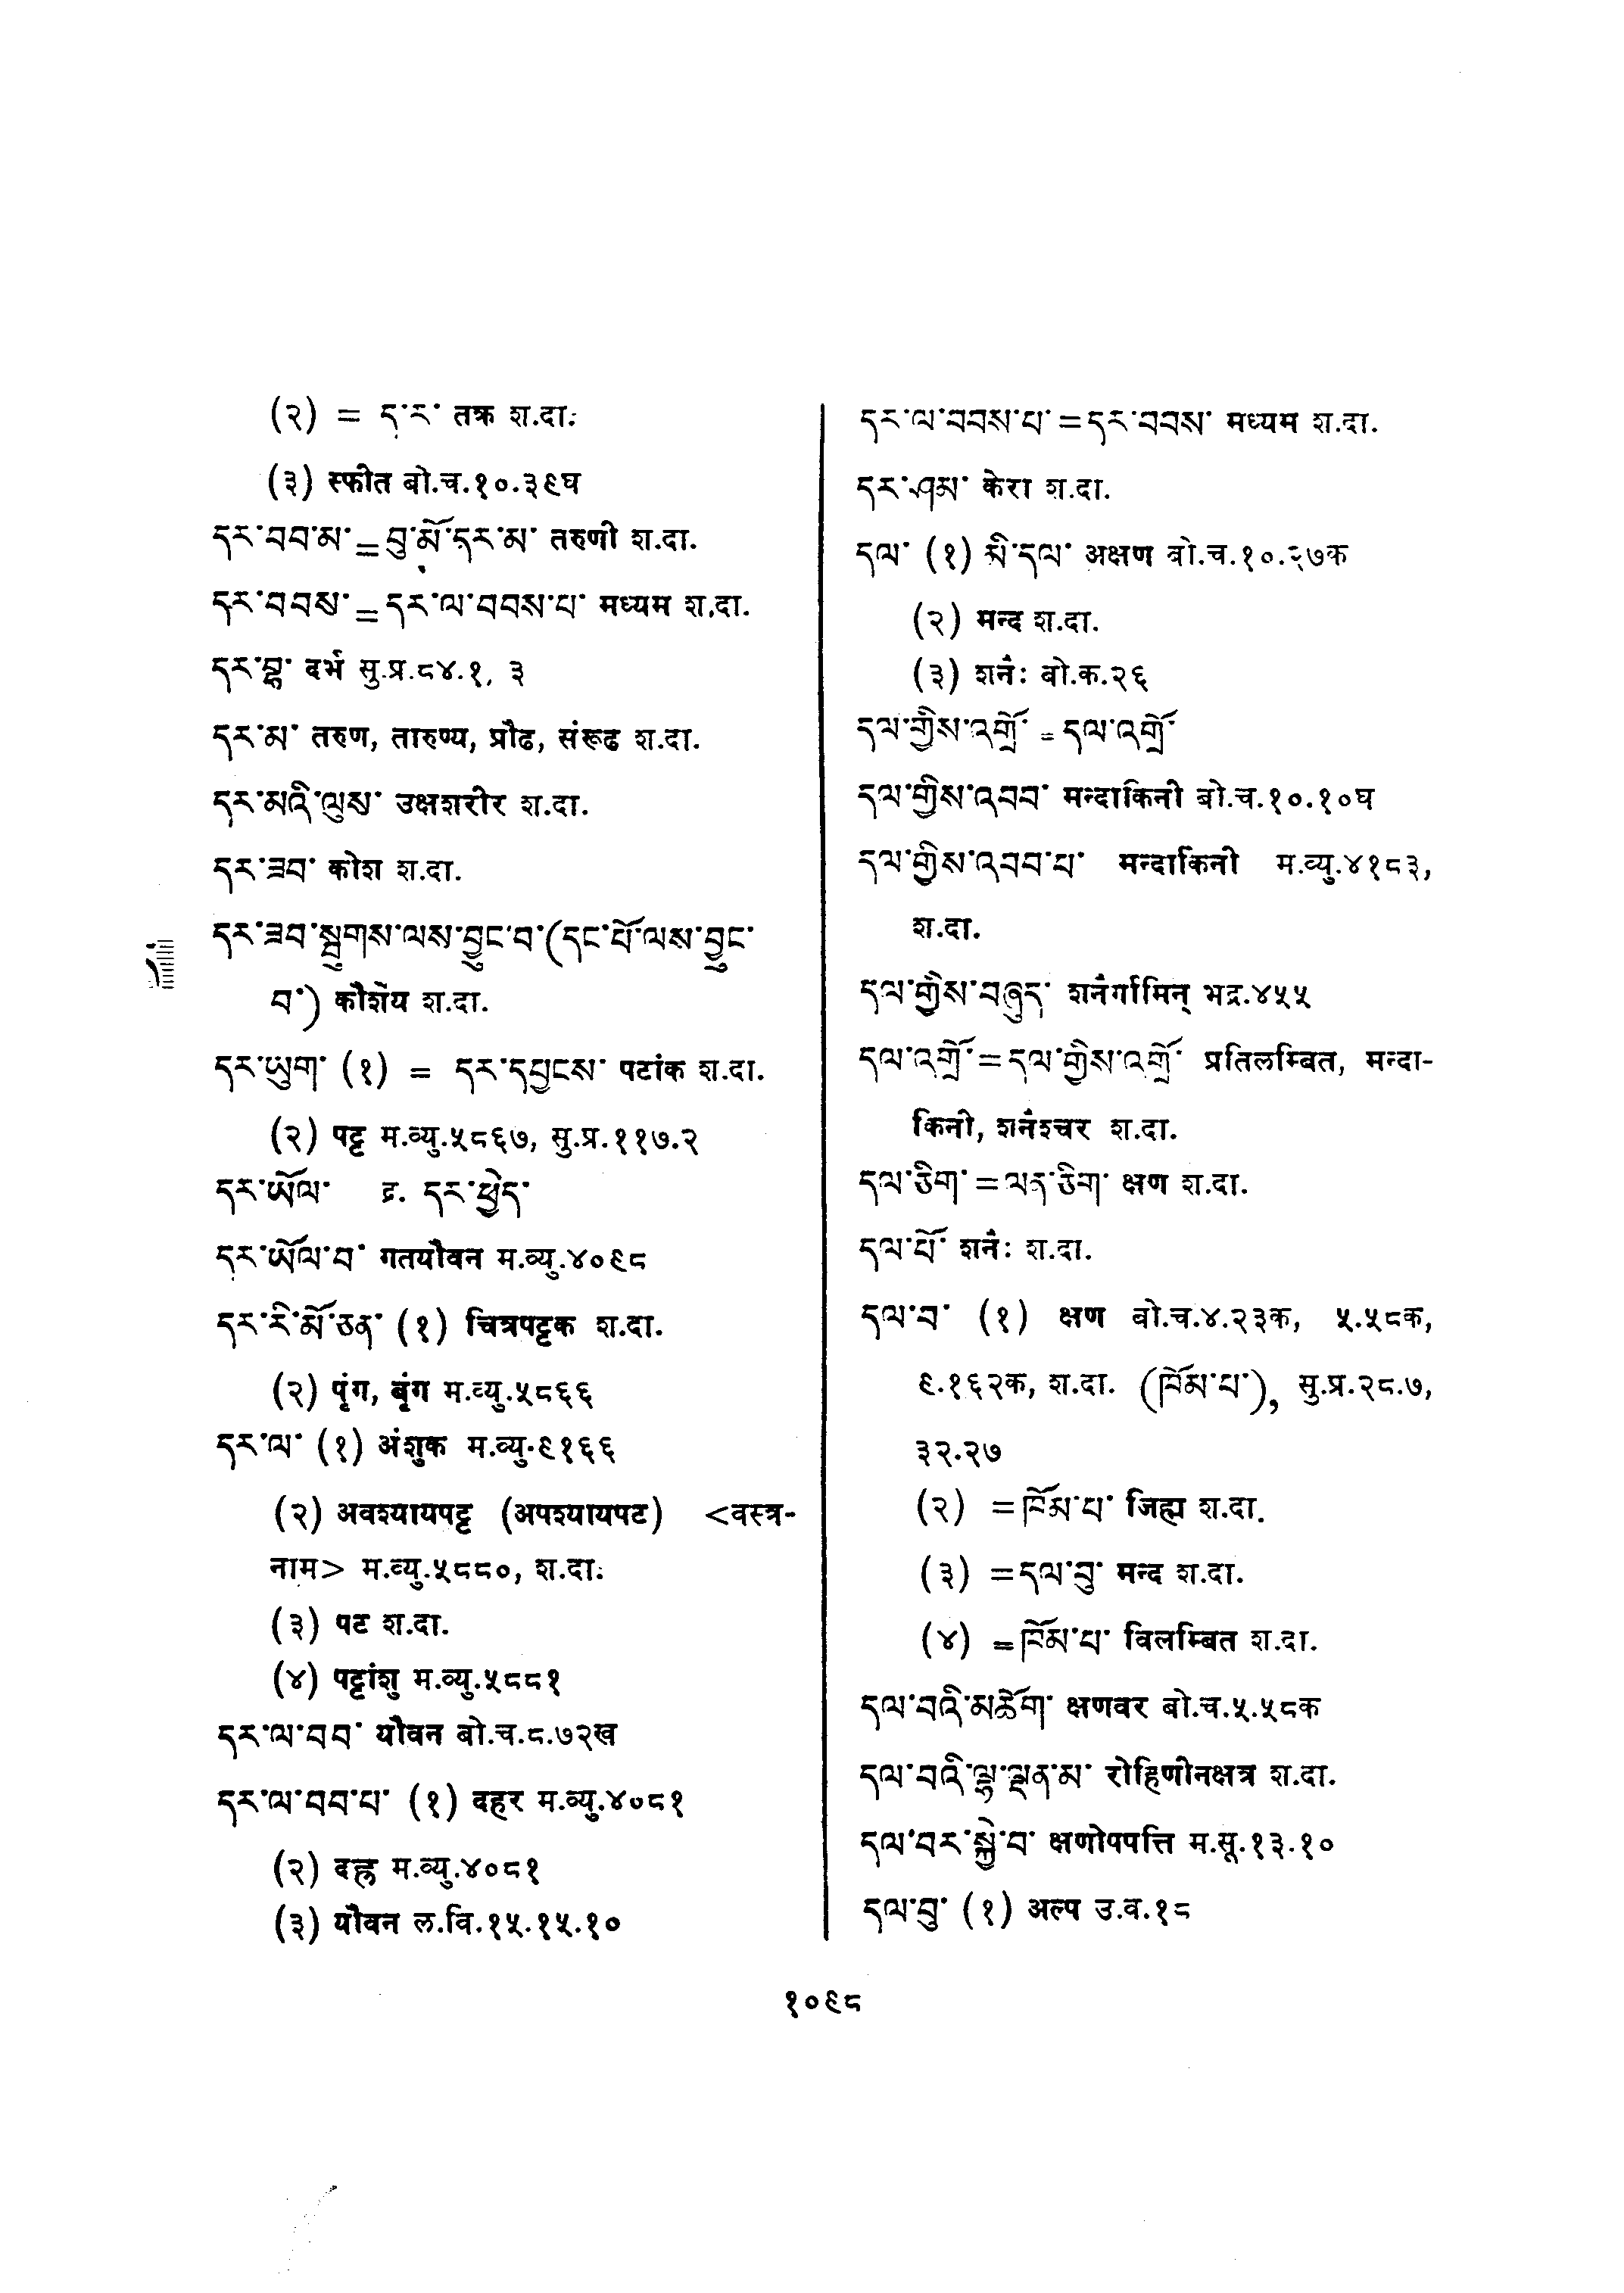 (२) = ད་ར་ तक्र श.दा.
(३) स्फीत बो.च.१०.३९घ
དར་བབ་མ་=བུ་མོ་དར་མ་ तरुणी श.दा.
དར་བབས་=དར་ལ་བབས་པ་ मध्यम श.दा.
དར་བྷ་ दर्भ सु.प्र.८४.१, ३
དར་མ་ तरुण, तारुण्य, प्रौढ, संरूढ श.दा.
དར་མའི་ལུས་ उक्षशरीर श.दा.
དར་ཟབ་ कोश श.दा.
དར་ཟབ་སྦྲུགས་ལས་བྱུང་བ་(དང་པོ་ལས་བྱུང་
བ་) कौशेय श.दा.
དར་ཡུག་ (१) = དར་དབྱངས་ पटांक श.दा.
(२) पट्ट म.व्यु.५८६७, सु.प्र.११७.२
དར་ཡོལ་ द्र. དར་ཕྱེད་
དར་ཡོལ་བ་ गतयौवन म.व्यु.४०९८
དར་རི་མོ་ཅན་ (१) चित्रपट्टक श.दा.
(२) पृंग, बृंग म.व्यु.५८६६
དར་ལ་ (१) अंशुक म.व्यु.९१६६
(२) अवश्यायपट्ट (अपश्यायपट) <वस्त्र-
नाम> म.व्यु.५८८०, श.दा.
(३) पट श.दा.
(४) पट्टांशु म.व्यु.५८८१
དར་ལ་བབ་ यौवन बो.च.८.७२ख
དར་ལ་བབ་པ་ (१) दहर म.व्यु.४०८१
(२) दह्र म.व्यु.४०८१
(३) यौवन ल.वि.१५.१५.१०
དར་ལ་བབས་པ་=དར་བབས་ मध्यम श.दा.
དར་ཤམ་ केरा श.दा.
དལ་ (१) མི་དལ་ अक्षण बो.च.१०.२७क
(२) मन्द श.दा.
(३) शनैः बो.क.२६
དལ་གྱིས་འགྲོ་ = དལ་འགྲོ་
དལ་གྱིས་འབབ་ मन्दाकिनी बो.च.१०.१०घ
དལ་གྱིས་འབབ་པ་ मन्दाकिनी म.व्यु.४१८३,
श.दा.
དལ་གྱིས་བཞུད་ शनैर्गामिन् भद्र.४५५
དལ་འགྲོ་=དལ་གྱིས་འགྲོ་ प्रतिलम्बित, मन्दा-
किनी, शनैश्चर श.दा.
དལ་ཅིག་=ལན་ཅིག་ क्षण श.दा.
དལ་པོ་ शनैः श.दा.
དལ་བ་ (१) क्षण बो.च.४.२३क, ५.५८क,
९.१६२क, श.दा. (ཁོམ་པ་), सु.प्र.२८.७,
३२.२७
(२) =ཁོམ་པ་ जिह्म श.दा.
(३) =དལ་བུ་ मन्द श.दा.
(४) =ཁོམ་པ་ विलम्बित श.दा.
དལ་བའི་མཆོག་ क्षणवर बो.च.५.५८क
དལ་བའི་ལྷ་ལྡན་མ་ रोहिणीनक्षत्र श.दा.
དལ་བར་སྐྱེ་བ་ क्षणोपपत्ति म.सू.१३.१०
དལ་བུ་ (१) अल्प उ.व.१८
१०९८